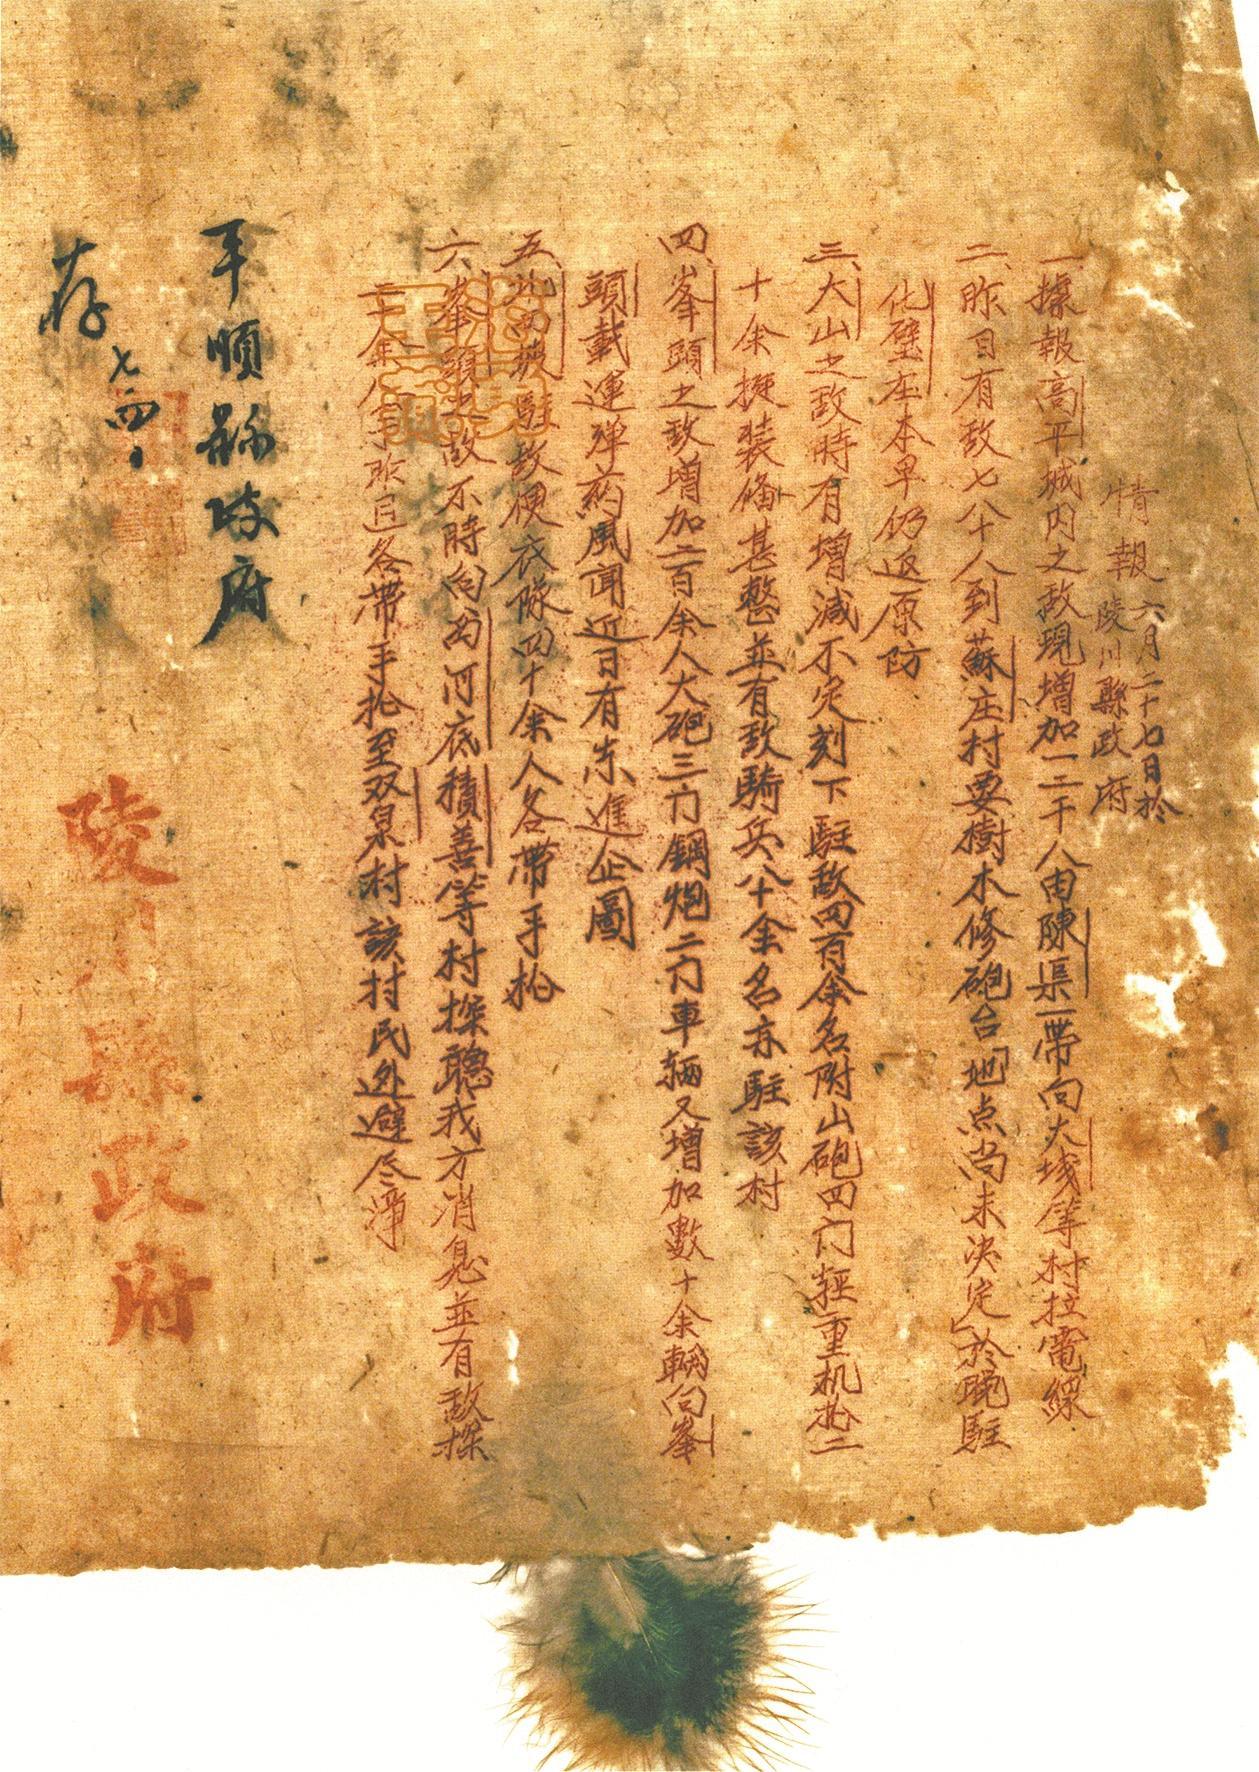 情報 六月二十七日於
陵川縣政府
一、據報高平城内之敌現增加一二千人由陳渠一帶向大埁等村拉電綫
二、昨日有敌七八十人到蘇庄村要樹木修砲台「地点尚未决定」於晚駐
化壁在本早仍返原防
三、大山之敌時有增減不定刻下駐敌四百余名附山砲四门輕重机枪二
十余挺装俻甚整並有敌騎兵八十余名亦駐該村
四、峯頭之敌增加二百余人大砲三门鋼炮二门車輛又增加數十余輛向峯
頭載運弹葯風闻近日有东進企圖
五、駐敌便衣隊四十余人各帶手枪
六、峯頭之敌不時向勾河底積善等村探聽我方消息並有敌探
二十余人于昨日各帶手枪至双泉村該村民逃避尽淨
平順縣政府
存 七、四、
陵川縣政府